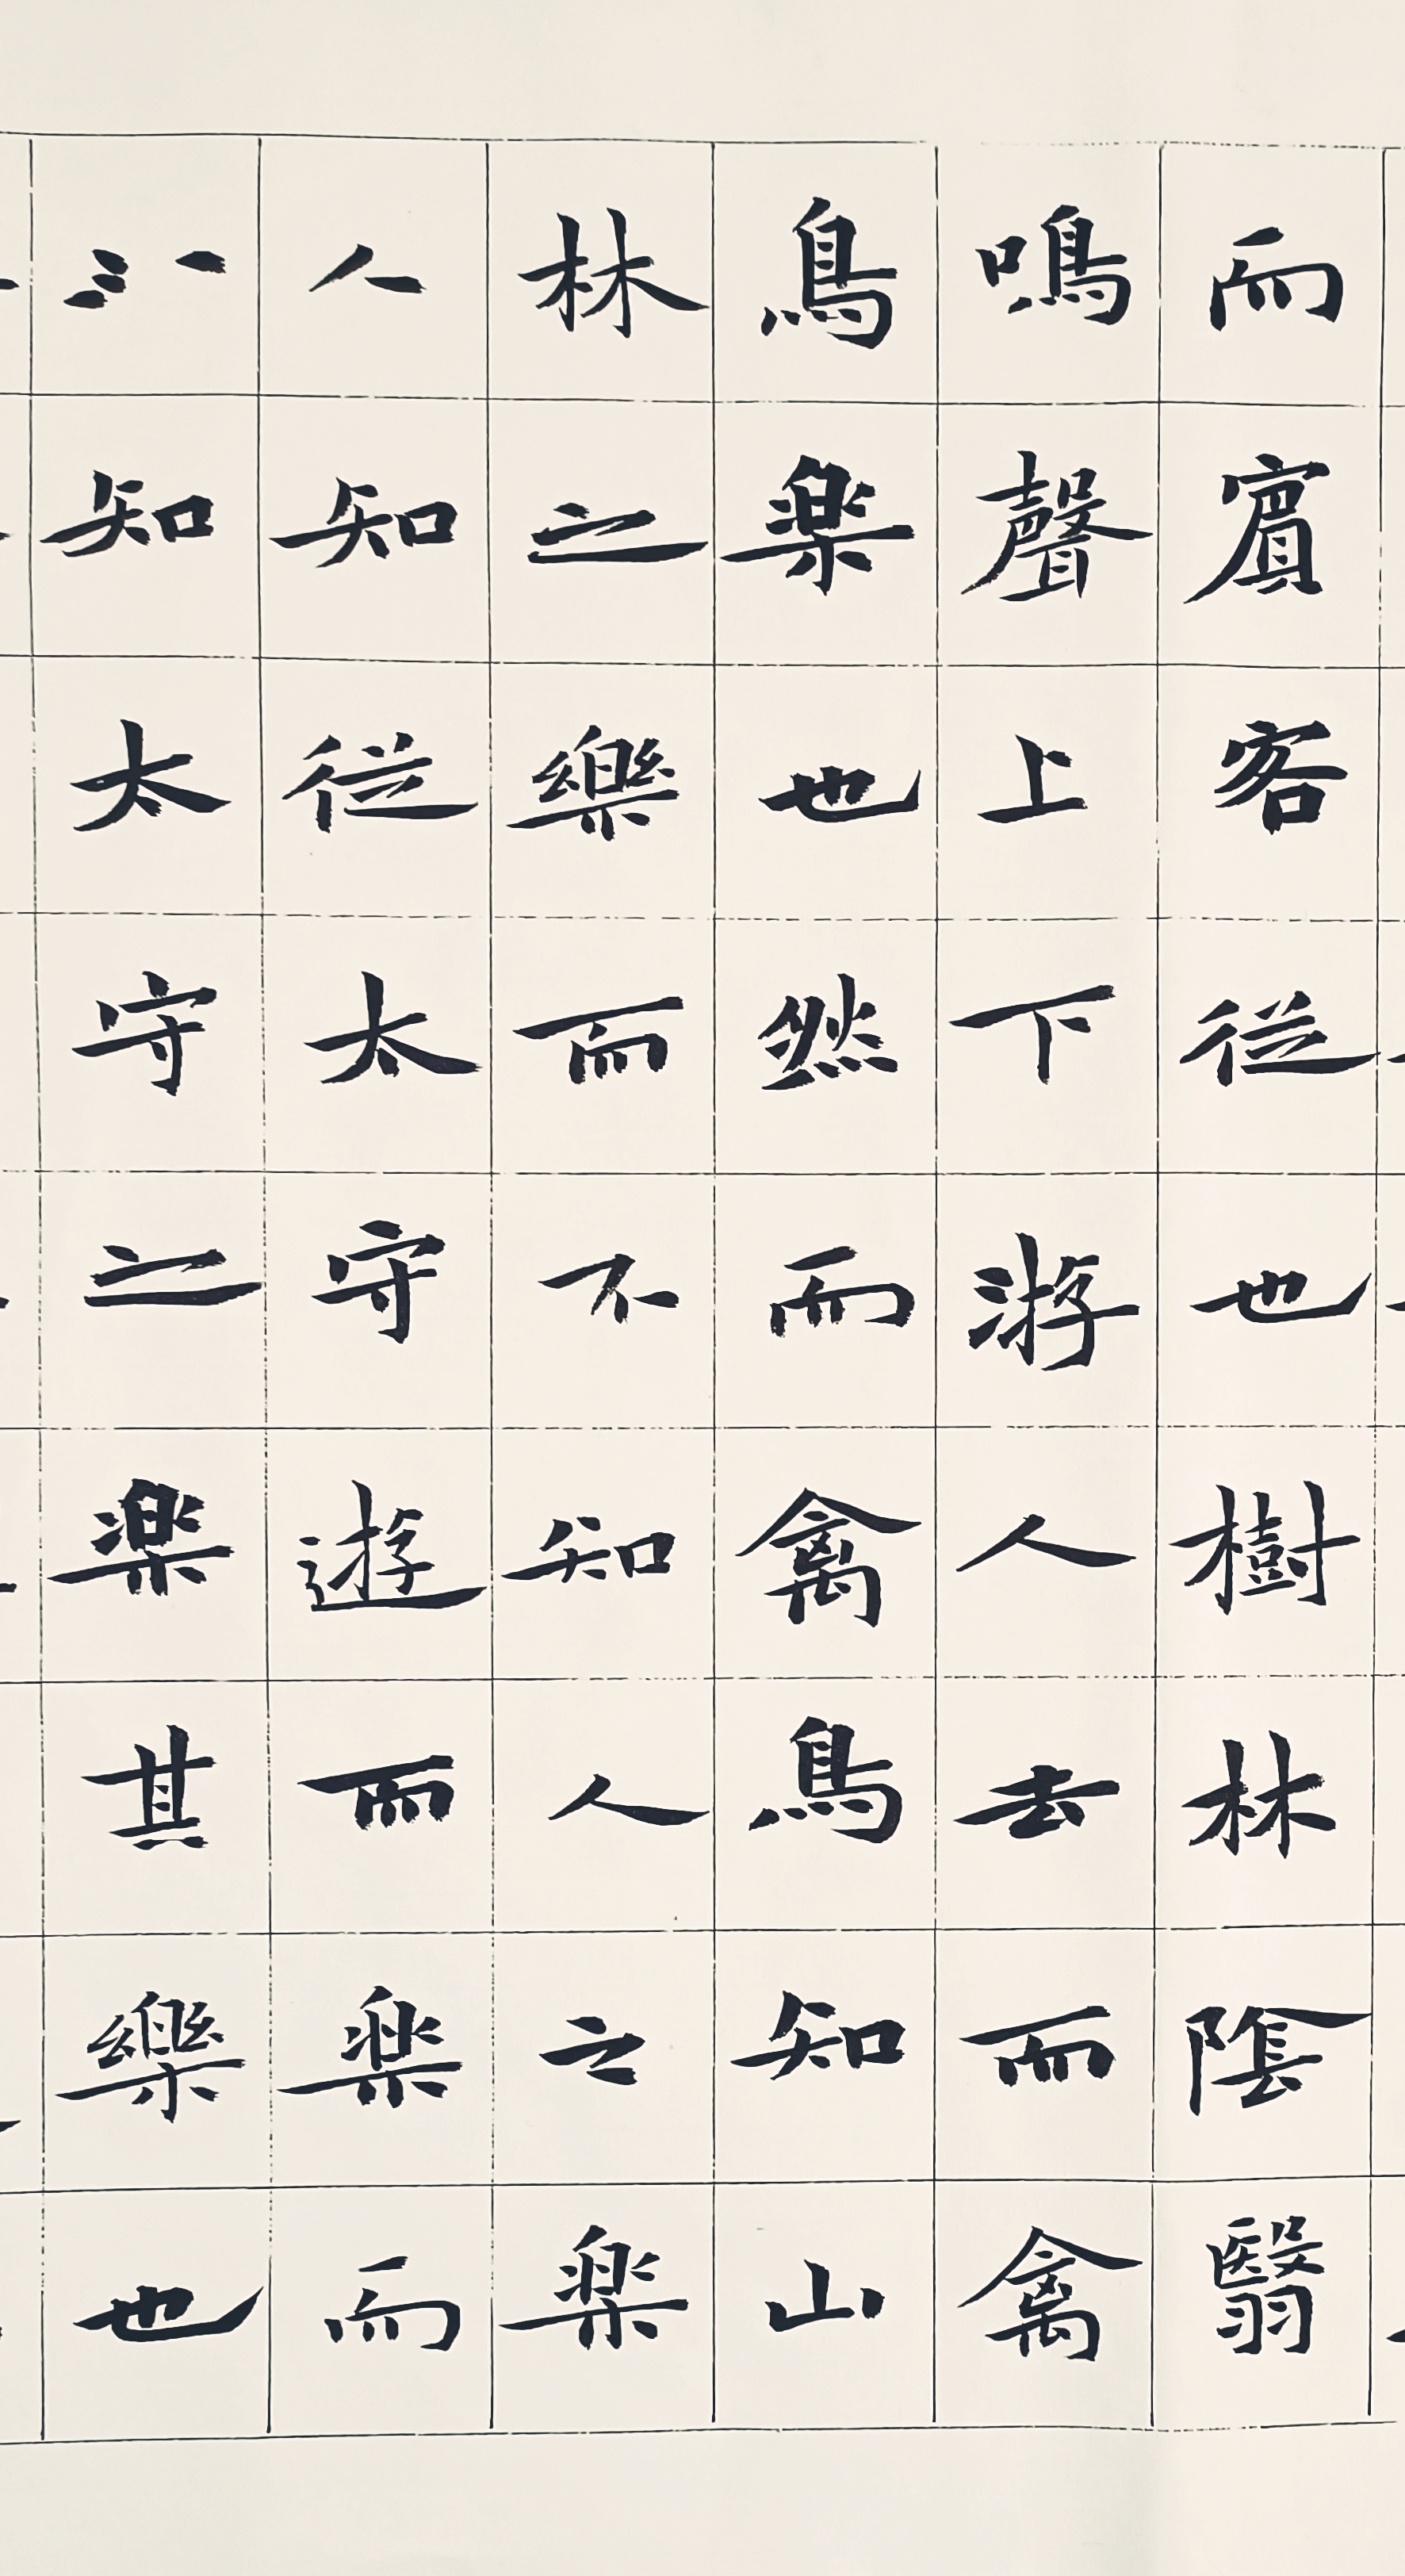 而賓客従也樹林陰翳
鳴聲上下游人去而禽
鳥楽也然而禽鳥知山
林之樂而不知人之楽
人知従太守遊而楽而
不知太守之楽其樂也